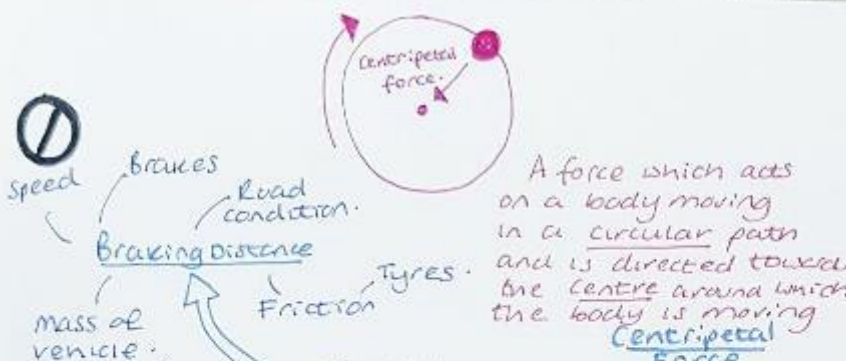 Centripetal
force.
Speed
Brakes
Road
condition.
Braking Distance
Friction
Tyres.
mass of
vehicle.
A force which acts
on a body moving
in a circular path
and is directed towards
the centre around which
the body is moving
Centripetal
Force